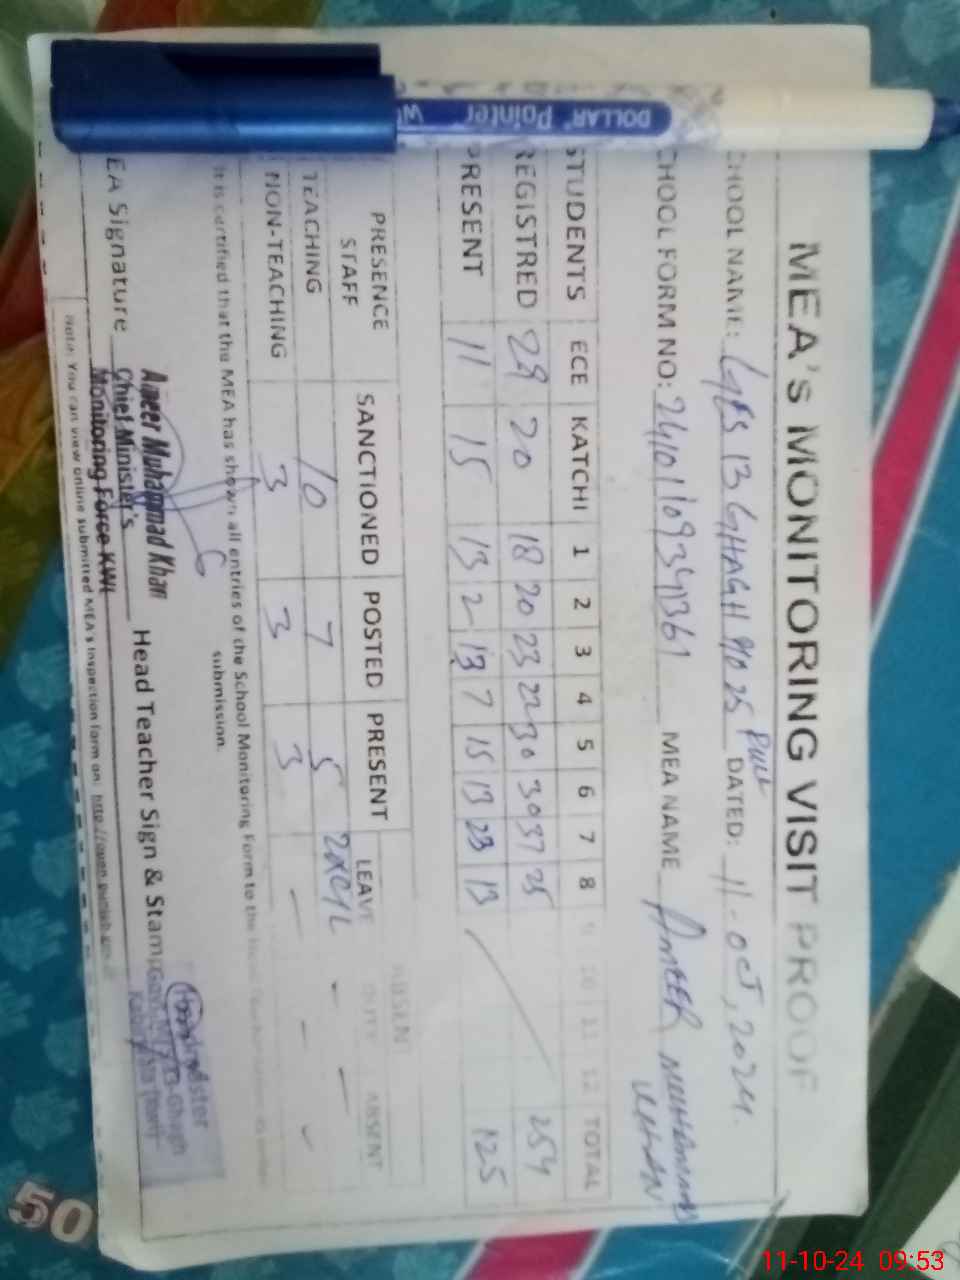 DOLLAR Pointer
MEA's MONITORING VISIT PROOF
CHOOL NAME: 13 GHAGH DATED: 11-OCT, 2024.
CHOOL FORM NO: MEA NAME AMEER MUHAMMAD
KHAN
STUDENTS ECE KATCHI 1 2 3 4 5 6 7 8 9 10 11 12 TOTAL
REGISTRED 29 20 18 20 23 22 30 30 37 25 254
PRESENT 11 15 13 2 13 7 15 13 23 13 125
PRESENCE SANCTIONED POSTED PRESENT ABSENT
STAFF LEAVE DUTY ABSENT
TEACHING 10 7 5 - -
NON-TEACHING 3 3 3 - -
It is certified that the MEA has shown all entries of the School Monitoring Form to the
submission.
EA Signature Head Teacher Sign & Stamp
Ameer Muhammad Khan
Chief Minister's
Monitoring Force KWL
Note: You can view online submitted MEA's inspection form on:
50
11-10-24 09:53